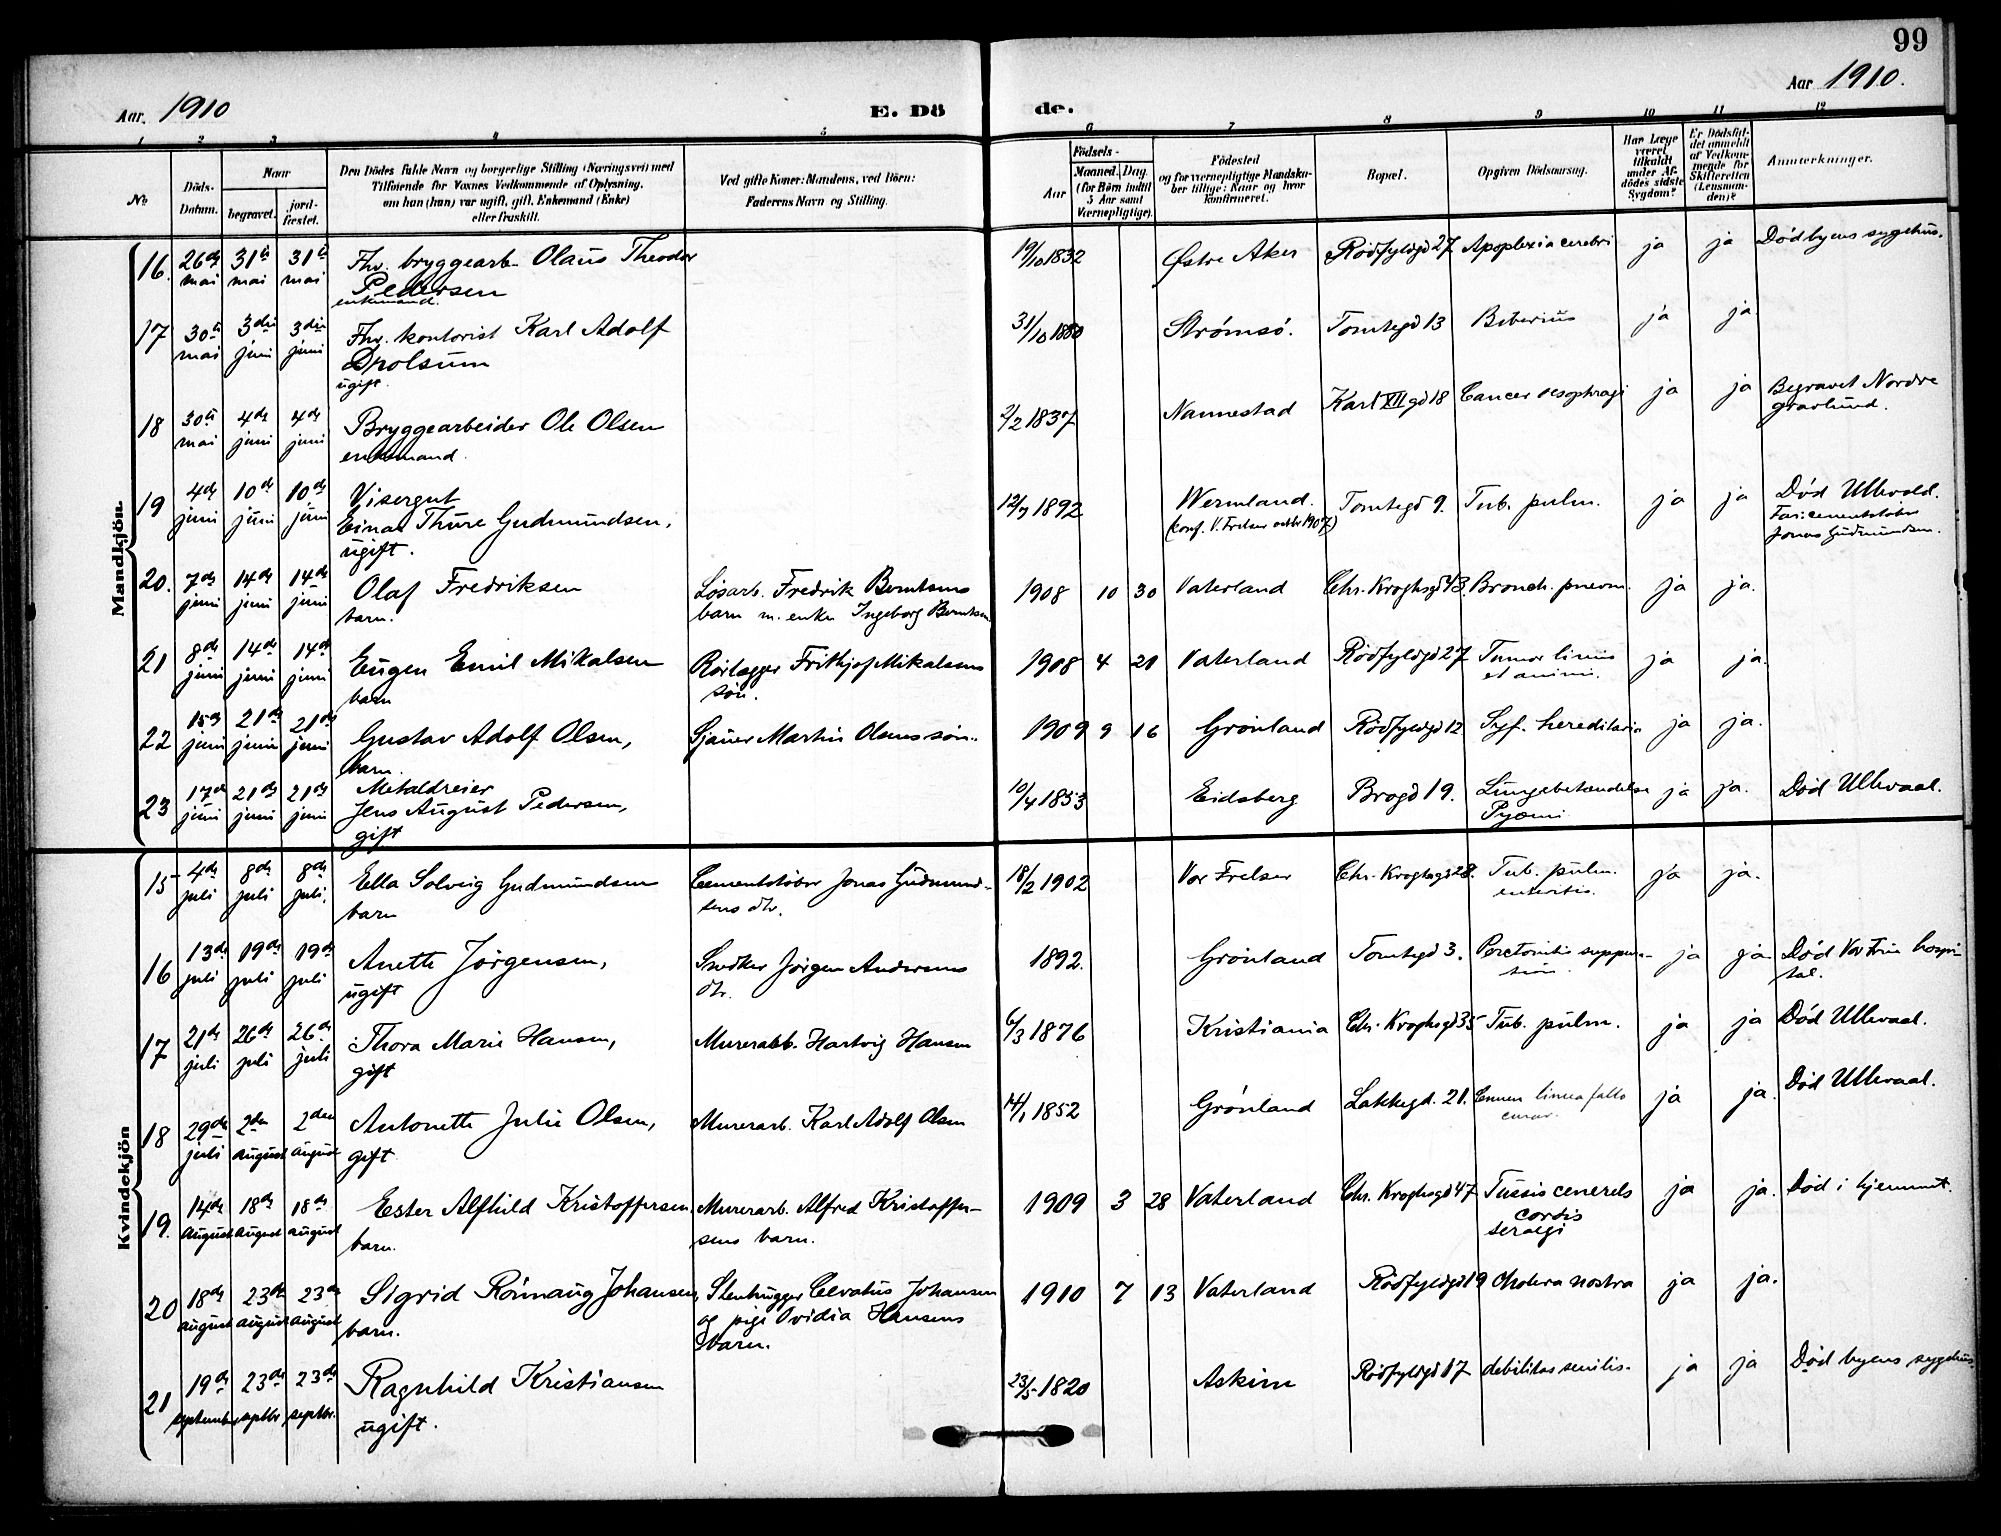 99
Aar. 1910
E. Dö
de.
Aar 1910.
1 2 3 4 5 6 7 8 9 10 11 12
No
Döds-
Datum.
Naar
begravet.
jord-
fæstet.
Den Dödes fulde Navn og borgerlige Stilling (Næringsvei) med
Tilföiende for Voxnes Vedkommende af Oplysning,
om han (hun) var ugift, gift, Enkemand (Enke)
eller fraskilt.
Ved gifte Koner: Mandens, ved Börn:
Faderens Navn og Stilling.
Födsels-
Aar
Maaned. Dag
(for Börn indtil
5 Aar samt
Værnepligtige).
Födested
og for værnepligtige Mandskaber
tillige: Naar og hvor
konfirmeret.
Bopæl.
Opgiven Dödsaarsag.
Har Læge
været
tilkaldt
under Afdödes
sidste
Sygdom?
Er Dödsfaldet
anmeldt
af Vedkommende
for
Skifteretten
(Lensmanden)?
Anmærkninger.
Mandkjön.
16. 26de mai 31te mai 31te mai Fhv. bryggearb. Olaus Theodor
Pedersen
enkemand.
19/10 1832 Østre Aker Rødfyldgd 27 Apoplexia cerebri ja ja Død byens sygehus.
17 30te mai 3die juni 3die juni Fhv. kontorist Karl Adolf
Drolsum
ugift.
31/10 1880 Strømsø. Tomtegd 13 ja ja
18 30te mai 4de juni 4de juni Bryggearbeider Ole Olsen
enkemand.
2/2 1837 Nannestad Karl XII gd 18 Cancer oesophagi ja ja Begravet Nordre
gravlund.
19 4de juni 10de juni 10de juni Visergut
Einar Thure Gudmundsen,
ugift.
12/7 1892 Wermland.
(konf. V. Frelser oktbr 1907)
Tomtegd 9. Tub. pulm. ja ja Død Ullevold.
Far: cementstøber
Jonas Gudmundsen.
20. 7de juni 14de juni 14de juni Olaf Fredriksen
barn.
Løsarb. Fredrik Berntsens
barn m. enke Ingeborg Berntsen
1908 10 30 Vaterland Chr. Kroghsgd 43. Bronch. pneum. ja ja.
21 8de juni 14de juni 14de juni Eugen Emil Mikalsen
barn
Rørlægger Frithjof Mikalsens
søn.
1908 4 21 Vaterland Rødfyldgd 27 Tumor
ja ja.
22 15de juni 21de juni 21de juni Gustav Adolf Olsen,
barn.
Sjauer Martin Olsens søn.
1909 9 16 Grønland Rødfyldgd 12 Syf. hereditaria ja ja.
23 17de juni 21de juni 21de juni Metaldreier
Jens August Pedersen,
gift
10/4 1853 Eidsberg Brogd 19. Lungebetændelse
Pyæmi
ja ja. Død Ullevaal.
Kvindekjön
15 4de juli 8de juli 8de juli. Ella Solveig Gudmundsen
barn
Cementstøber Jonas Gudmund-
sens dtr.
18/2 1902 Vor Frelser Chr. Kroghsgd 28. Tub. pulm.
enteritis.
ja ja.
16 13de juli 19de juli 19de juli Anette Jørgensen,
ugift
Snedker Jørgen Andersens
dtr.
1892. Grønland Tomtegd 3. Peretonitis suppura-
tion.
ja ja Død Vor Frue hospi-
tal.
17 21de juli 26de juli 26de juli Thora Marie Hansen,
gift
Murerarb. Hartvig Hansen
6/3 1876 Kristiania Chr. Kroghsgd 35 Tub. pulm. ja ja Død Ullevaal.
18 29de juli 2den august 2den august Antonette Julie Olsen,
gift
Murerarb. Karl Adolf Olsen
14/1 1852 Grønland Lakkegd. 21. ja ja. Død Ullevaal.
19. 14de august 18de august 18de august Ester Alfhild Kristoffersen
barn.
Murerarb. Alfred Kristoffer-
sens barn.
1909 3 28 Vaterland Chr. Kroghsgd 47 Tussis
cordis
ja ja. Død i hjemmet.
20 18de august 23de august 23de august Sigrid Rønnaug Johansen,
barn.
Stenhugger Cevatus Johansen
og pige Ovidia Hansens
barn.
1910 7 13 Vaterland Rødfyldgd 19 Cholera nostra ja ja.
21 19de september 23de septbr. 23de septbr. Ragnhild Kristiansen
ugift.
23/5 1820 Askim Rødfyldgd 17 debilitas senilis. ja ja Død byens sygehus